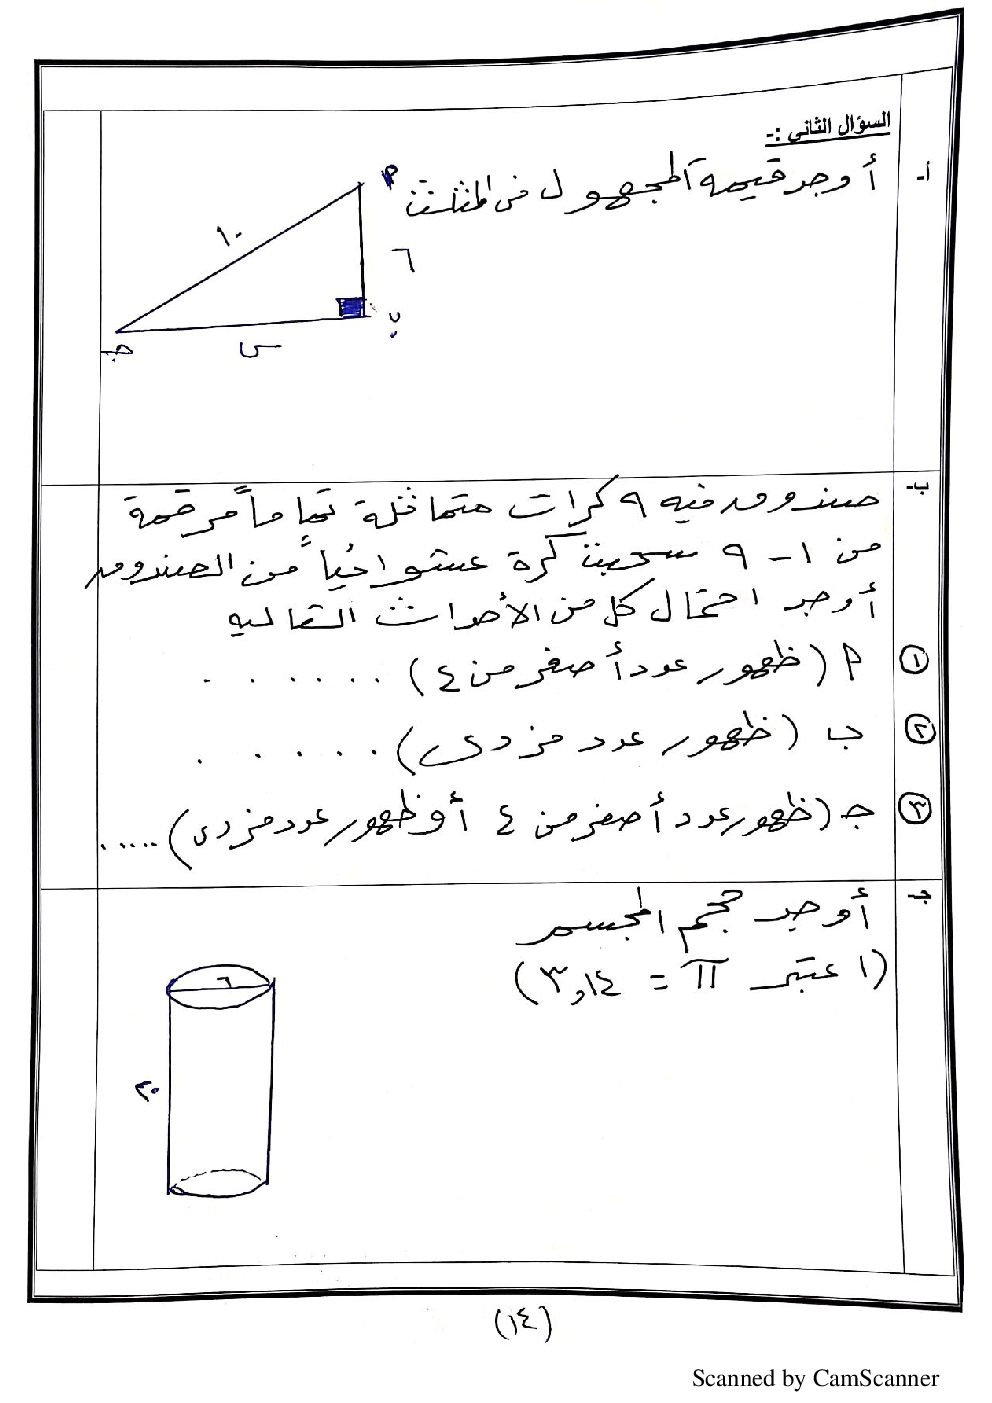 السؤال الثانى :-
أ- أوجد قيمة المجهول فى المثلث
م
١٠
٦
ب
س
جـ
ب- صندوق فيه ٩ كرات متماثلة تماماً مرقمة
من ١ - ٩ سحبت كرة عشوائياً من الصندوق
أوجد احتمال كل من الأحداث التاليه
١ م (ظهور عدد أصغر من ٤) . . . . . . .
٢ ب (ظهور عدد فردى) . . . . .
٣ جـ (ظهور عدد أصغر من ٤ أو ظهور عدد فردى) .....
جـ- أوجد حجم المجسم
(اعتبر π = ٣,١٤)
٦
٢٠
(١٤)
Scanned by CamScanner